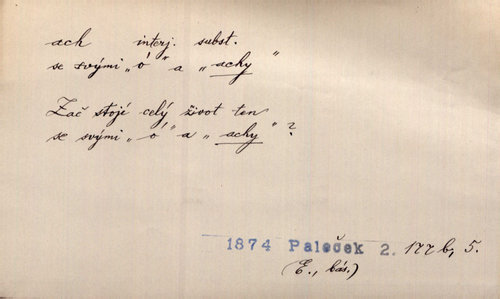 ach interj. subst.
se svými „ó" a „achy"
Zač stojí celý život ten
se svými „ó" a „achy"?
1874 Paleček 2. 177b, 5.
(E., bás.)